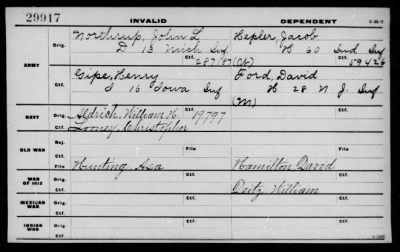 29917
INVALID
DEPENDENT
ARMY
Orig.
Northrup, John L
Hepler, Jacob
D 13 Mich Inf
H 60 Ind Inf
287187(Ct)
59426
Ctf.
Gipe, Henry
Ford, David
I 16 Iowa Inf
H 28 N J. Inf
(M)
NAVY
Orig.
Aldrich, William H. 19797
Ctf.
Looney, Christopher
OLD WAR
Rej.
File
File
Ctf.
Hunting, Asa
Hamilton, David
WAR OF 1812
Orig.
Deitz William
Ctf.
Ctf.
MEXICAN WAR
Orig.
Ctf.
Ctf.
INDIAN WAR
Orig.
Ctf.
Ctf.